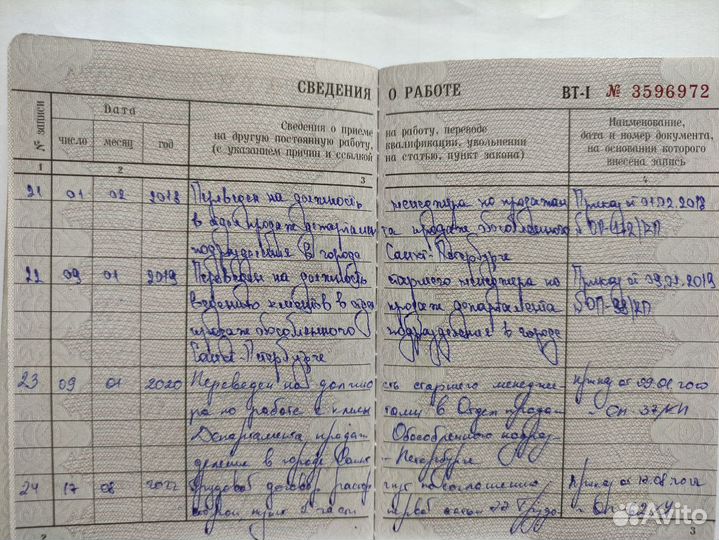 СВЕДЕНИЯ О РАБОТЕ ВТ-I № 3596972
№ записи
Дата
число месяц год
Сведения о приеме на работу, переводе
на другую постоянную работу, квалификации, увольнении
(с указанием причин и ссылкой на статью, пункт закона)
Наименование,
дата и номер документа,
на основании которого
внесена запись
1 2 3 4
21 01 02 2018 Переведен на должность менеджера по продажам Приказ от 01.02.2018
в отдел продаж департамента продаж обособленного
подразделения в городе Санкт-Петербурге
22 09 01 2019 Переведен на должность старшего менеджера по Приказ от
ведению клиентов в отдел продаж департамента
продаж обособленного подразделения в городе
Санкт-Петербурге
23 09 01 2020 Переведен на должность старшего менедже- приказ от 09.01.2020
ра по работе с клиентами в Отдел продаж
Департамента продаж Обособленного подраз-
деления в городе Санкт-Петербурге
24 17 08 2022 Трудовой договор расторгнут по соглашению приказ от
сторон, пункт 1 части первой статьи 77 Трудо-
2 3
Avito